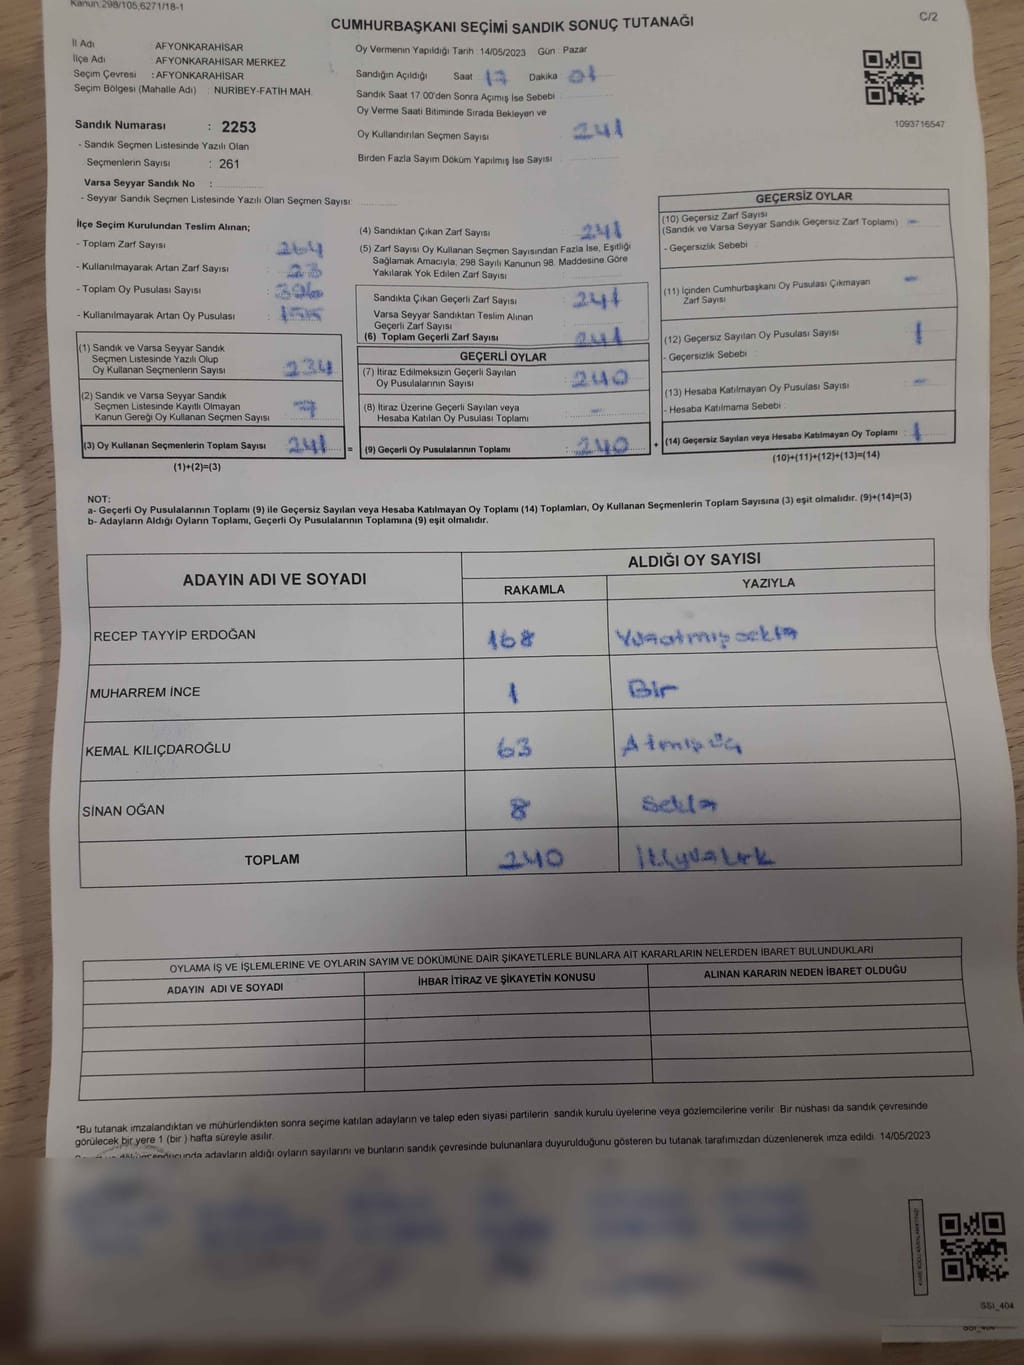 Kanun:298/105,6271/18-1
C/2
CUMHURBAŞKANI SEÇİMİ SANDIK SONUÇ TUTANAĞI
İl Adı AFYONKARAHİSAR
İlçe Adı AFYONKARAHİSAR MERKEZ
Seçim Çevresi : AFYONKARAHİSAR
Seçim Bölgesi (Mahalle Adı) : NURİBEY-FATİH MAH.
Sandık Numarası : 2253
- Sandık Seçmen Listesinde Yazılı Olan
Seçmenlerin Sayısı : 261
Varsa Seyyar Sandık No :
- Seyyar Sandık Seçmen Listesinde Yazılı Olan Seçmen Sayısı:
Oy Vermenin Yapıldığı Tarih : 14/05/2023 Gün : Pazar
Sandığın Açıldığı Saat 17 Dakika 01
Sandık Saat 17:00'den Sonra Açımış İse Sebebi
Oy Verme Saati Bitiminde Sırada Bekleyen ve
Oy Kullandırılan Seçmen Sayısı 241
Birden Fazla Sayım Döküm Yapılmış İse Sayısı
1093716547
İlçe Seçim Kurulundan Teslim Alınan;
- Toplam Zarf Sayısı : 264
- Kullanılmayarak Artan Zarf Sayısı : 23
- Toplam Oy Pusulası Sayısı : 396
- Kullanılmayarak Artan Oy Pusulası : 155
(1) Sandık ve Varsa Seyyar Sandık
Seçmen Listesinde Yazılı Olup
Oy Kullanan Seçmenlerin Sayısı : 234
(2) Sandık ve Varsa Seyyar Sandık
Seçmen Listesinde Kayıtlı Olmayan
Kanun Gereği Oy Kullanan Seçmen Sayısı : 7
(3) Oy Kullanan Seçmenlerin Toplam Sayısı : 241 =
(1)+(2)=(3)
(4) Sandıktan Çıkan Zarf Sayısı : 241
(5) Zarf Sayısı Oy Kullanan Seçmen Sayısından Fazla İse, Eşitliği
Sağlamak Amacıyla; 298 Sayılı Kanunun 98. Maddesine Göre
Yakılarak Yok Edilen Zarf Sayısı :
Sandıkta Çıkan Geçerli Zarf Sayısı : 241
Varsa Seyyar Sandıktan Teslim Alınan
Geçerli Zarf Sayısı :
(6) Toplam Geçerli Zarf Sayısı : 241
GEÇERLİ OYLAR
(7) İtiraz Edilmeksizin Geçerli Sayılan
Oy Pusulalarının Sayısı : 240
(8) İtiraz Üzerine Geçerli Sayılan veya
Hesaba Katılan Oy Pusulası Toplamı : -
(9) Geçerli Oy Pusulalarının Toplamı : 240 +
GEÇERSİZ OYLAR
(10) Geçersiz Zarf Sayısı
(Sandık ve Varsa Seyyar Sandık Geçersiz Zarf Toplamı) : -
- Geçersizlik Sebebi :
(11) İçinden Cumhurbaşkanı Oy Pusulası Çıkmayan
Zarf Sayısı : -
(12) Geçersiz Sayılan Oy Pusulası Sayısı : 1
- Geçersizlik Sebebi :
(13) Hesaba Katılmayan Oy Pusulası Sayısı : -
- Hesaba Katılmama Sebebi :
(14) Geçersiz Sayılan veya Hesaba Katılmayan Oy Toplamı : 1
(10)+(11)+(12)+(13)=(14)
NOT:
a- Geçerli Oy Pusulalarının Toplamı (9) ile Geçersiz Sayılan veya Hesaba Katılmayan Oy Toplamı (14) Toplamları, Oy Kullanan Seçmenlerin Toplam Sayısına (3) eşit olmalıdır. (9)+(14)=(3)
b- Adayların Aldığı Oyların Toplamı, Geçerli Oy Pusulalarının Toplamına (9) eşit olmalıdır.
ADAYIN ADI VE SOYADI
ALDIĞI OY SAYISI
RAKAMLA YAZIYLA
RECEP TAYYİP ERDOĞAN 168 Yüzatmışsekiz
MUHARREM İNCE 1 Bir
KEMAL KILIÇDAROĞLU 63 Atmışüç
SİNAN OĞAN 8 Sekiz
TOPLAM 240 İkiyüzkırk
OYLAMA İŞ VE İŞLEMLERINE VE OYLARIN SAYIM VE DÖKÜMÜNE DAİR ŞİKAYETLERLE BUNLARA AİT KARARLARIN NELERDEN İBARET BULUNDUKLARI
ADAYIN ADI VE SOYADI İHBAR İTİRAZ VE ŞİKAYETİN KONUSU ALINAN KARARIN NEDEN İBARET OLDUĞU
*Bu tutanak imzalandıktan ve mühürlendikten sonra seçime katılan adayların ve talep eden siyasi partilerin sandık kurulu üyelerine veya gözlemcilerine verilir. Bir nüshası da sandık çevresinde
görülecek bir yere 1 (bir ) hafta süreyle asılır.
adayların aldığı oyların sayılarını ve bunların sandık çevresinde bulunanlara duyurulduğunu gösteren bu tutanak tarafımızdan düzenlenerek imza edildi. 14/05/2023
SSI_404